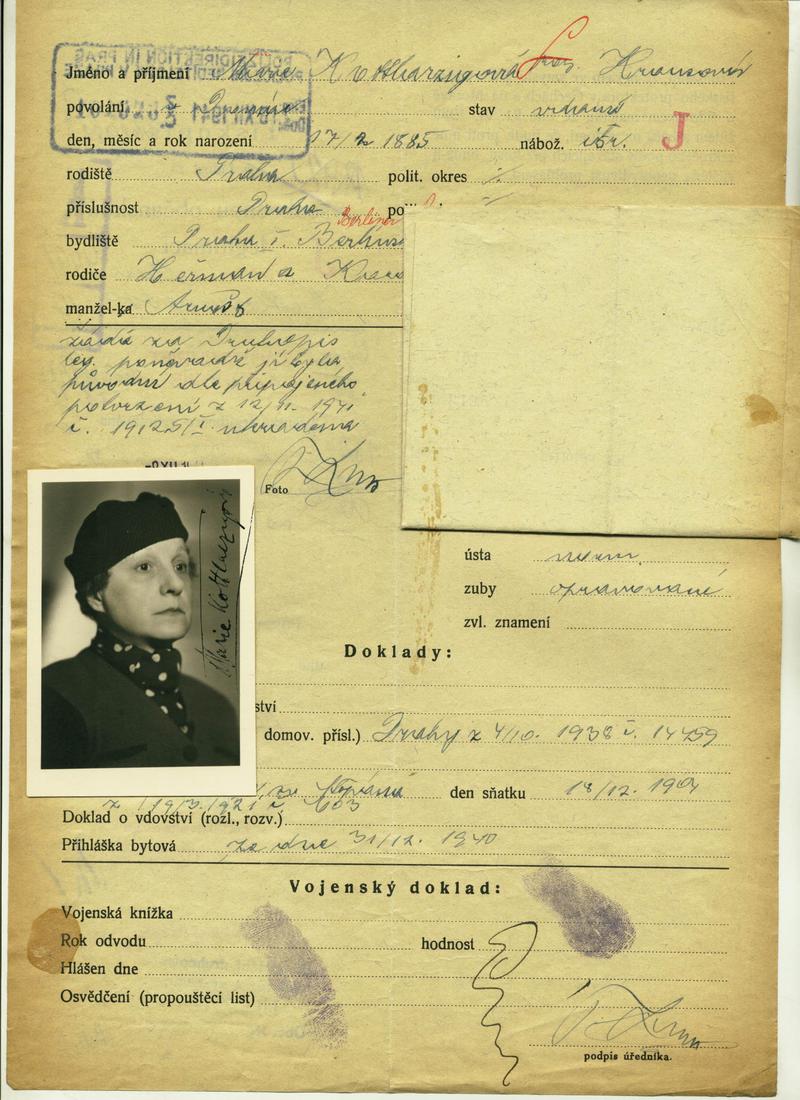 Jméno a příjmení Marie Kottharzigová roz. Krausová
povolání v domác. stav vdaná
den, měsíc a rok narození 17/2 1885 nábož. isr. J
rodiště Praha polit. okres
příslušnost Praha po
Berliner
bydliště Praha I.
rodiče Heřman a
manžel-ka Arnošt
žádá za Druhopis
leg. poněvadž jí byla
původní dle připojeného
potvrzení z 12/11. 1941
č. 19125/I.
Foto
Marie
ústa
zuby opravované
zvl. znamení
Doklady:
ství
domov. přísl.) Prahy z 4/10. 1938 č. 14459
den sňatku 18/12. 1904
z 19/3. 1921 č. 603
Doklad o vdovství (rozl., rozv.)
Přihláška bytová ze dne 31/12. 1940
Vojenský doklad:
Vojenská knížka
Rok odvodu hodnost
Hlášen dne
Osvědčení (propouštěcí list)
podpis úředníka.